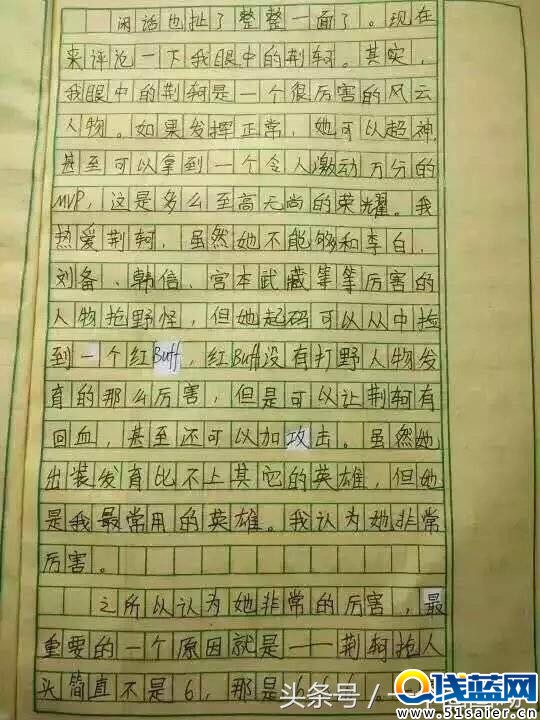 闲话也扯了整整一面了。现在
来评论一下我眼中的荆轲。其实,
我眼中的荆轲是一个很厉害的风云
人物。如果发挥正常,她可以超神,
甚至可以拿到一个令人激动万分的
MVP,这是多么至高无尚的荣耀。我
热爱荆轲,虽然她不能够和李白、
刘备、韩信、宫本武藏等等厉害的
人物抢野怪,但她起码可以从中捡
到一个红Buff,红Buff没有打野人物发
育的那么厉害,但是可以让荆轲有
回血,甚至还可以加攻击。虽然她
出装发育比不上其它的英雄,但她
是我最常用的英雄。我认为她非常
厉害。
之所以认为她非常的厉害,最
重要的一个原因就是——荆轲抢人
头简直不是6,那是666
头条号/一
浅蓝网
www.51saier.cn